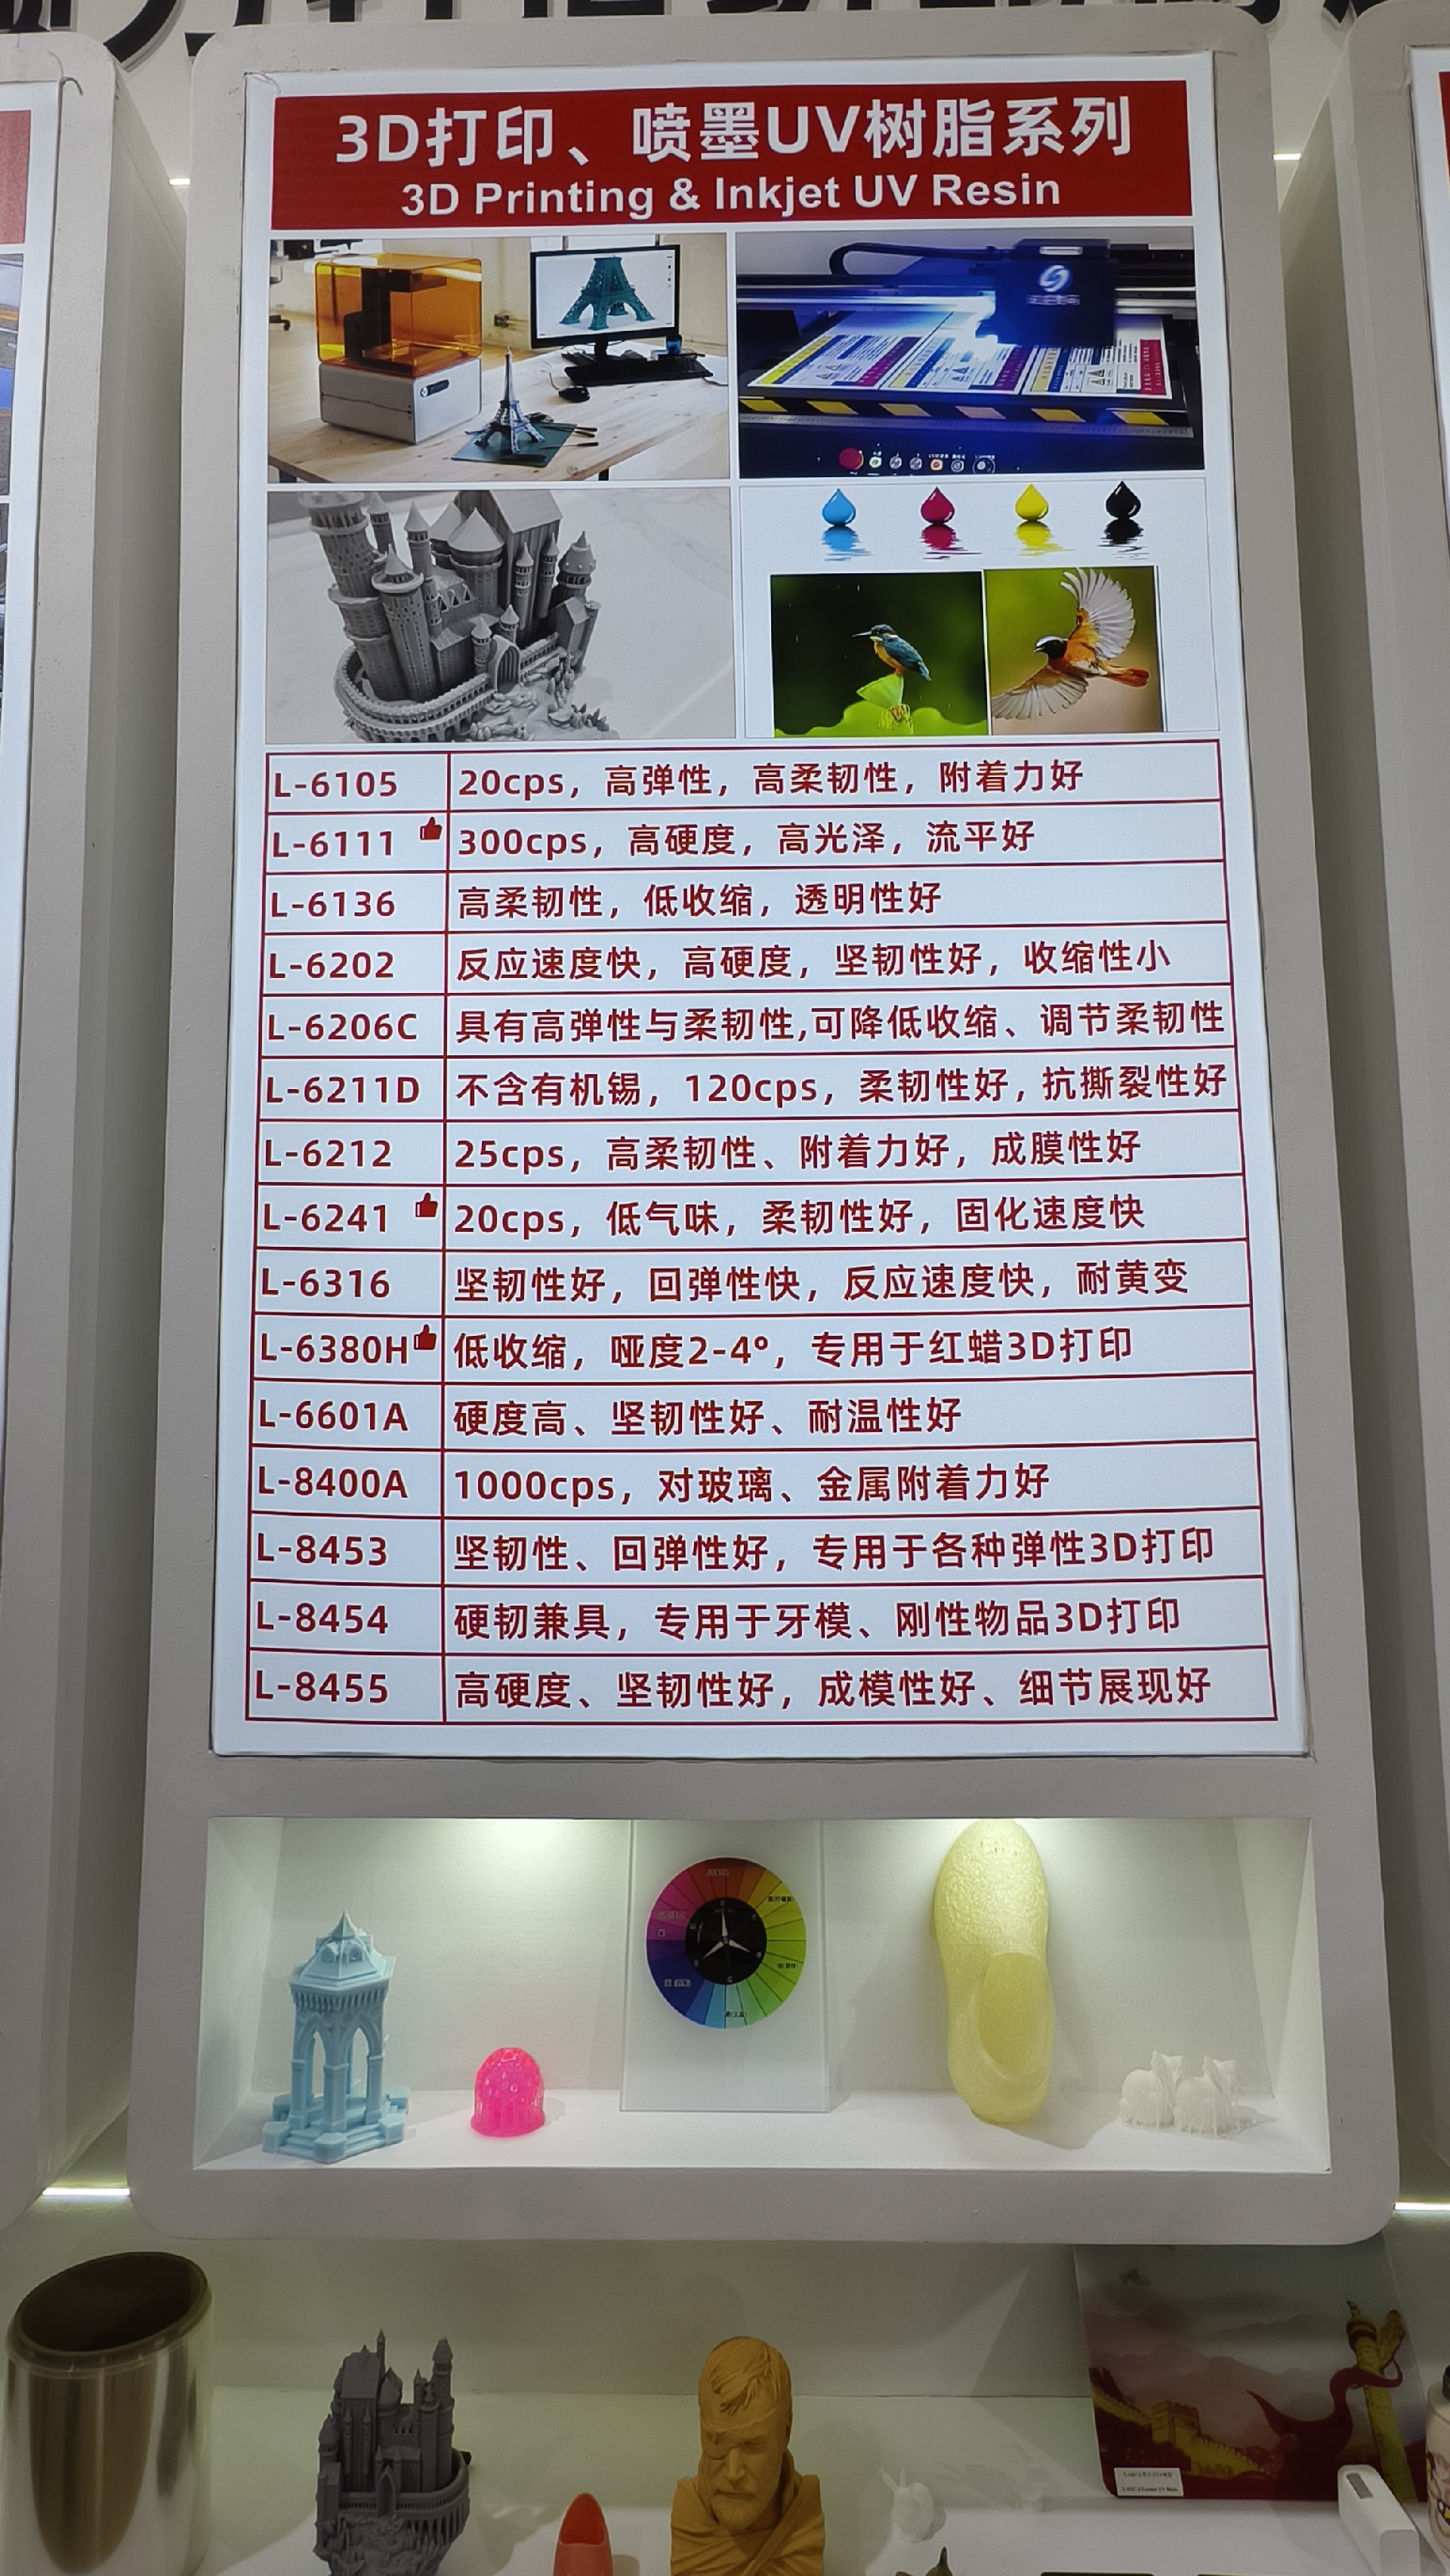 3D打印、喷墨UV树脂系列
3D Printing & Inkjet UV Resin
L-6105 20cps，高弹性，高柔韧性，附着力好
L-6111 300cps，高硬度，高光泽，流平好
L-6136 高柔韧性，低收缩，透明性好
L-6202 反应速度快，高硬度，坚韧性好，收缩性小
L-6206C 具有高弹性与柔韧性,可降低收缩、调节柔韧性
L-6211D 不含有机锡，120cps，柔韧性好，抗撕裂性好
L-6212 25cps，高柔韧性、附着力好，成膜性好
L-6241 20cps，低气味，柔韧性好，固化速度快
L-6316 坚韧性好，回弹性快，反应速度快，耐黄变
L-6380H 低收缩，哑度2-4°，专用于红蜡3D打印
L-6601A 硬度高、坚韧性好、耐温性好
L-8400A 1000cps，对玻璃、金属附着力好
L-8453 坚韧性、回弹性好，专用于各种弹性3D打印
L-8454 硬韧兼具，专用于牙模、刚性物品3D打印
L-8455 高硬度、坚韧性好，成模性好、细节展现好